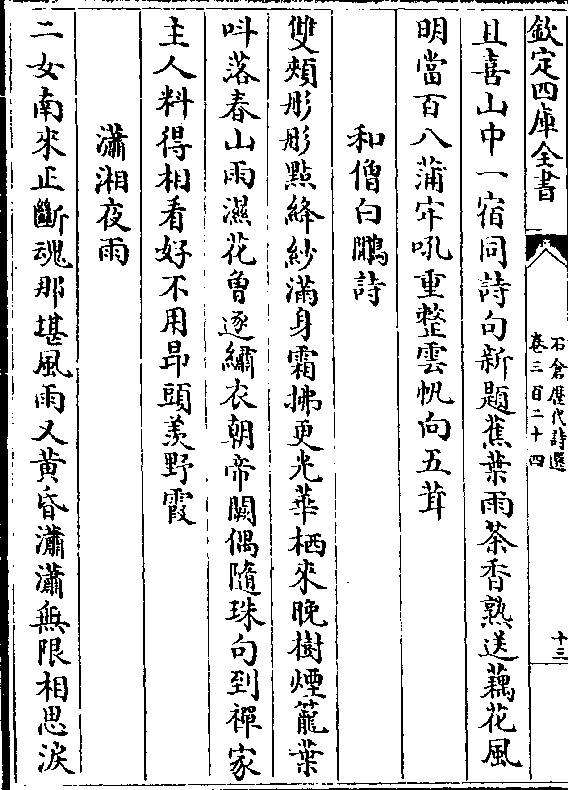 欽定四庫全書
石倉歷代詩選
卷三百二十四
十三
且喜山中一宿同詩句新題蕉葉雨茶香熟送藕花風
明當百八蒲牢吼重整雲帆向五茸
和僧白鷴詩
雙頰彤彤點絳紗滿身霜拂更光華栖來晚樹煙籠葉
呌落春山雨濕花曾逐繡衣朝帝闕偶隨珠句到禪家
主人料得相看好不用昂頭羡野霞
瀟湘夜雨
二女南來正斷魂那堪風雨又黃昏瀟瀟無限相思淚